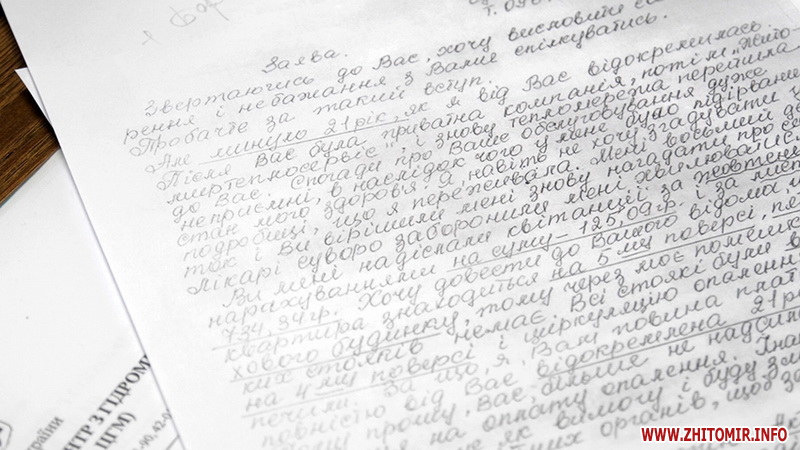 Заява.
Звертаючись до Вас, хочу висловити
рення і небажання з Вами спілкуватись.
Пробачте за такий вступ.
Але минуло 21 рік, як я від Вас відокремилась.
Після Вас була приватна компанія, потім "Жито-
миртеплосервіс", і знову тепломережа перейшла
до Вас. Спогади про Ваше обслуговування дуже
неприємні, в наслідок чого у мене було підірване
стан мого здоров'я. Я навіть не хочу згадувати
подробиці, що я переживала. Мені восьмий де-
ток і Ви вирішили мені знову нагадати про
Лікарі суворо заборонили мені хвилюватись.
Ви мені надіслали квітанції за жовтень
нарахуваннями на суму - 125,09 г. і за
734,34 г. Хочу довести до Вашого відома
квартира знаходиться на 5 му поверсі,
хового будинку, тому через моє
ких стояків немає. Всі стояки були
на 4 му поверсі і циркуляцію опалення
печили. За що, я, Вам повинна
повністю від Вас відокремлена 21 рік
прошу, Вас, більше не
на оплату опалення.
як вимогу і буду
органів, щоб
НТР З ГІДРОМ
ЦГМ)
країни
WWW.ZHITOMIR.INFO